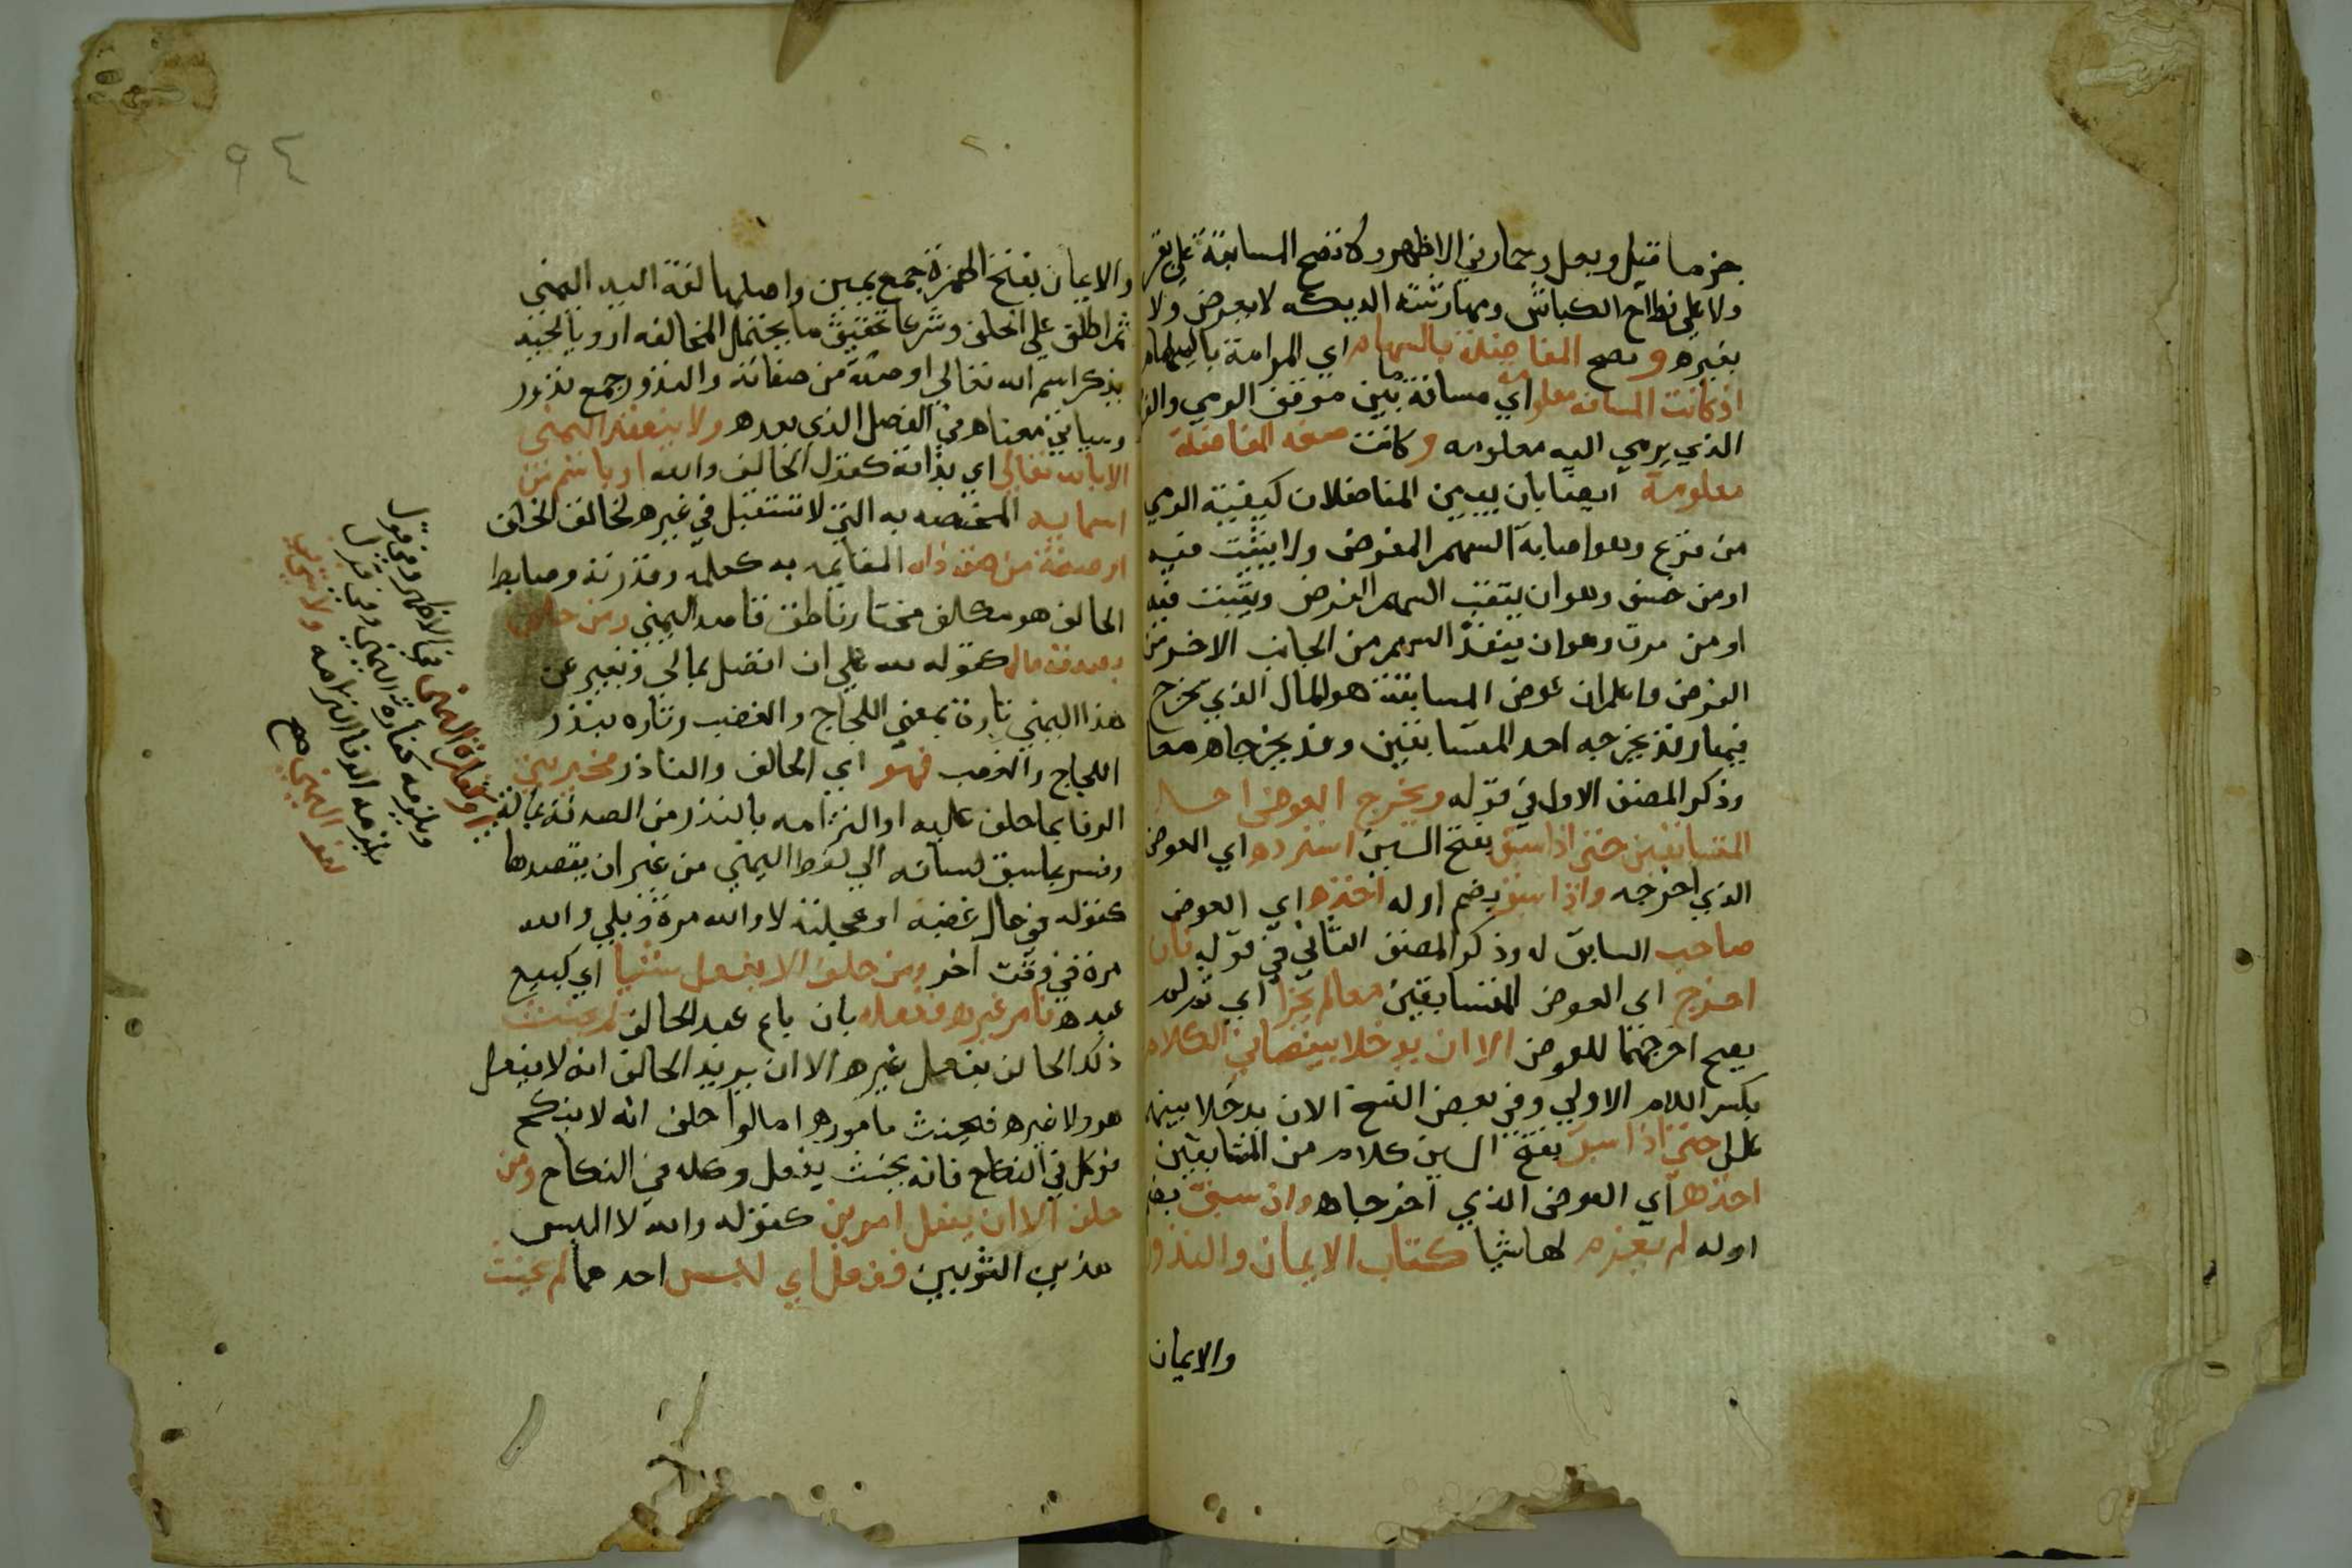 جزما وفيل وبغل وحمار في الاظهر ولا تصح المسابقة على بقر
ولا على نطاح الكباش ومهارشة الديكه لا بعوض ولا
بغيره و تصح المناضلة بالسهام اي المراماة بالسهام
اذ كانت المسافه معلومه اي مسافة ما بين موقف الرمي والغر
الذي يرمي اليه معلومه وكانت صفه المناضلة
معلومة ايضا بان يبين المناضلان كيفية الرمي
من قرع وهو اصابة السهم الغرض ولا يثبت فيه
او من خسق وهو ان يثقب السهم الغرض ويثبت فيه
او من مرق وهو ان ينفذ السهم من الجانب الاخر من
الغرض واعلم ان عوض المسابقة هو المال الذي يخرج
فيها وقد يخرجه احد المتسابقين وقد يخرجاه معا
وذكر المصنف الاول في قوله ويخرج العوض احد
المتسابقين حتى اذا سبق بفتح السين استرده اي العوض
الذي اخرجه واذا سبق بضم اوله اخذه اي العوض
صاحبه السابق له وذكر المصنف الثاني في قوله فان
اخرج اي العوض المتسابقين معا لم يجز اي
يصح اخراجهما للعوض الا ان يدخلا بينهما
بكسر اللام الاولى وفي بعض النسخ الا ان يدخلا بينهما
محللا حتى اذا سبق بفتح السين كلا من المتسابقين
اخذها اي العوض الذي اخرجاه وان سبق بضم
اوله لم يغرم لهما شيا كتاب الايمان والنذور
والايمان
والايمان بفتح الهمزة جمع يمين واصلها لغة اليد اليمني
ثم اطلق على الحلف وشرعا تحقيق ما يحتمل المخالفه او
بذكر اسم الله تعالى او صفة من صفاته والنذور جمع نذور
وسياتي معناه في الفصل الذي بعده ولا ينعقد اليمين
الا بالله تعالى اي بذاته كقول الحالف والله او باسم من
اسمايه المختصه به التي لا تستعمل في غيره كخالق الخلق
او صفة من صفة ذاته القايمه به كعلمه وقدرته وضابط
الحالف هو مكلف مختار ناطق قاصد اليمين ومن حلف
بصدقة ماله كقوله لله علي ان اتصدق بمالي ويعبر عن
هذا اليمين تارة بمعني اللجاج والغضب وتاره بنذر
اللجاج والغضب فهو اي الحالف والناذر مخير بين
الوفا بما حلف عليه او التزامه بالنذر من الصدقة بماله
وفسر بما سبق لسانه الي لفظ اليمين من غير ان يقصدها
كقوله في حال غضبه او عجلته لا والله مرة وبلي والله
مرة في وقت اخر ومن حلف الا يفعل شيا اي كبيع
عبده فامر غيره ففعله بان باع عبد الحالف لم يحنث
ذلك الحالف بفعل غيره الا ان يريد الحالف انه لا يفعل
هو ولا غيره فيحنث مأموره اما لو احلف انه لا ينكح
فوكل في النكاح فانه يحنث بفعل وكيله في النكاح ومن
حلف الا ان يفعل امرين كقوله والله لا البس
هذين الثوبين ففعل اي لبس احدهما لم يحنث
او كفارة اليمين في الاظهر وفي قول
ويلزمه كفارة اليمين وفي قول
يلزمه الوفا بالتزامه ولا شي في
لغو اليمين صح
٩٤